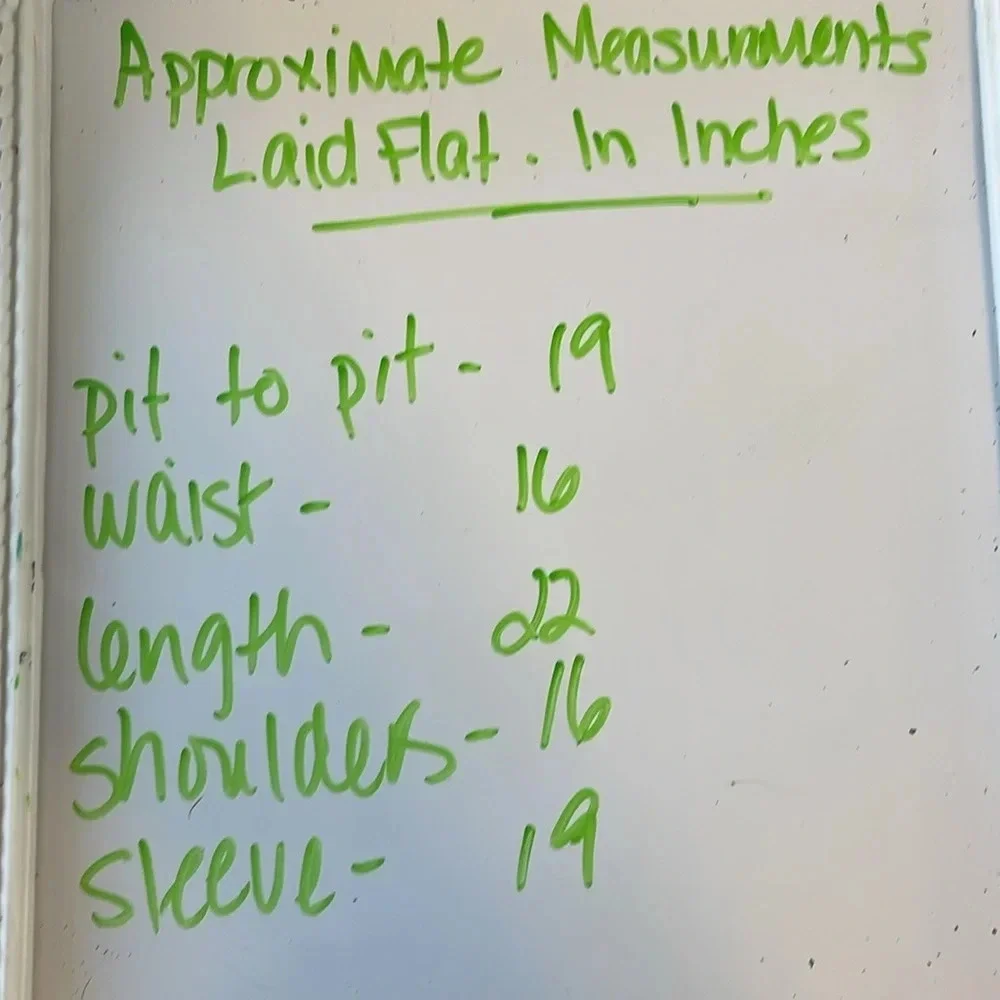 Approximate Measurments
Laid Flat. In Inches
pit to pit - 19
waist - 16
length - 22
shoulders - 16
sleeve - 19